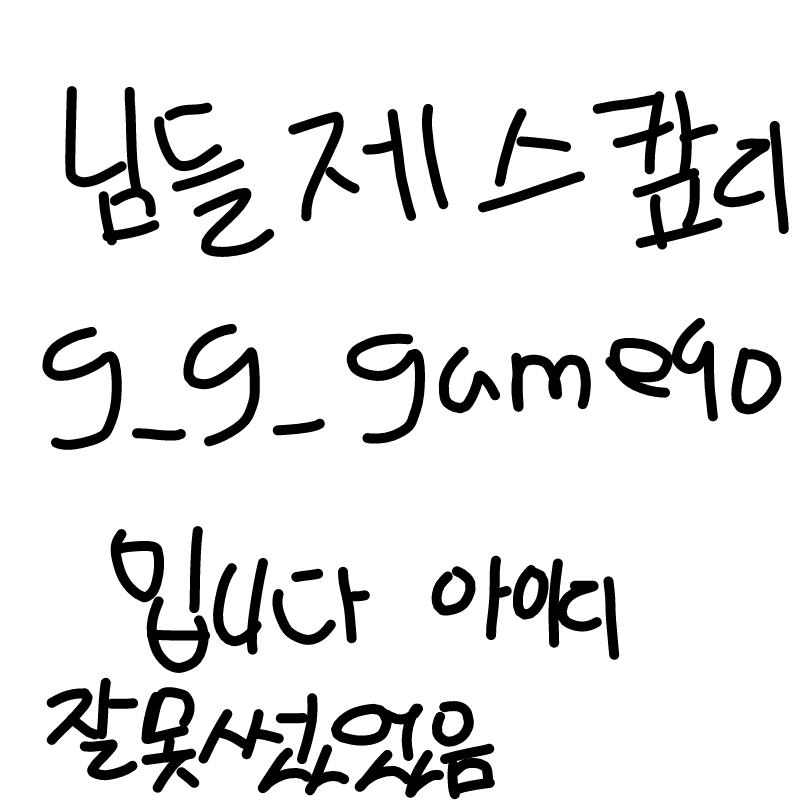 님들 제 스캎디
g_g_game90
입니다 아이디
잘못썼었음